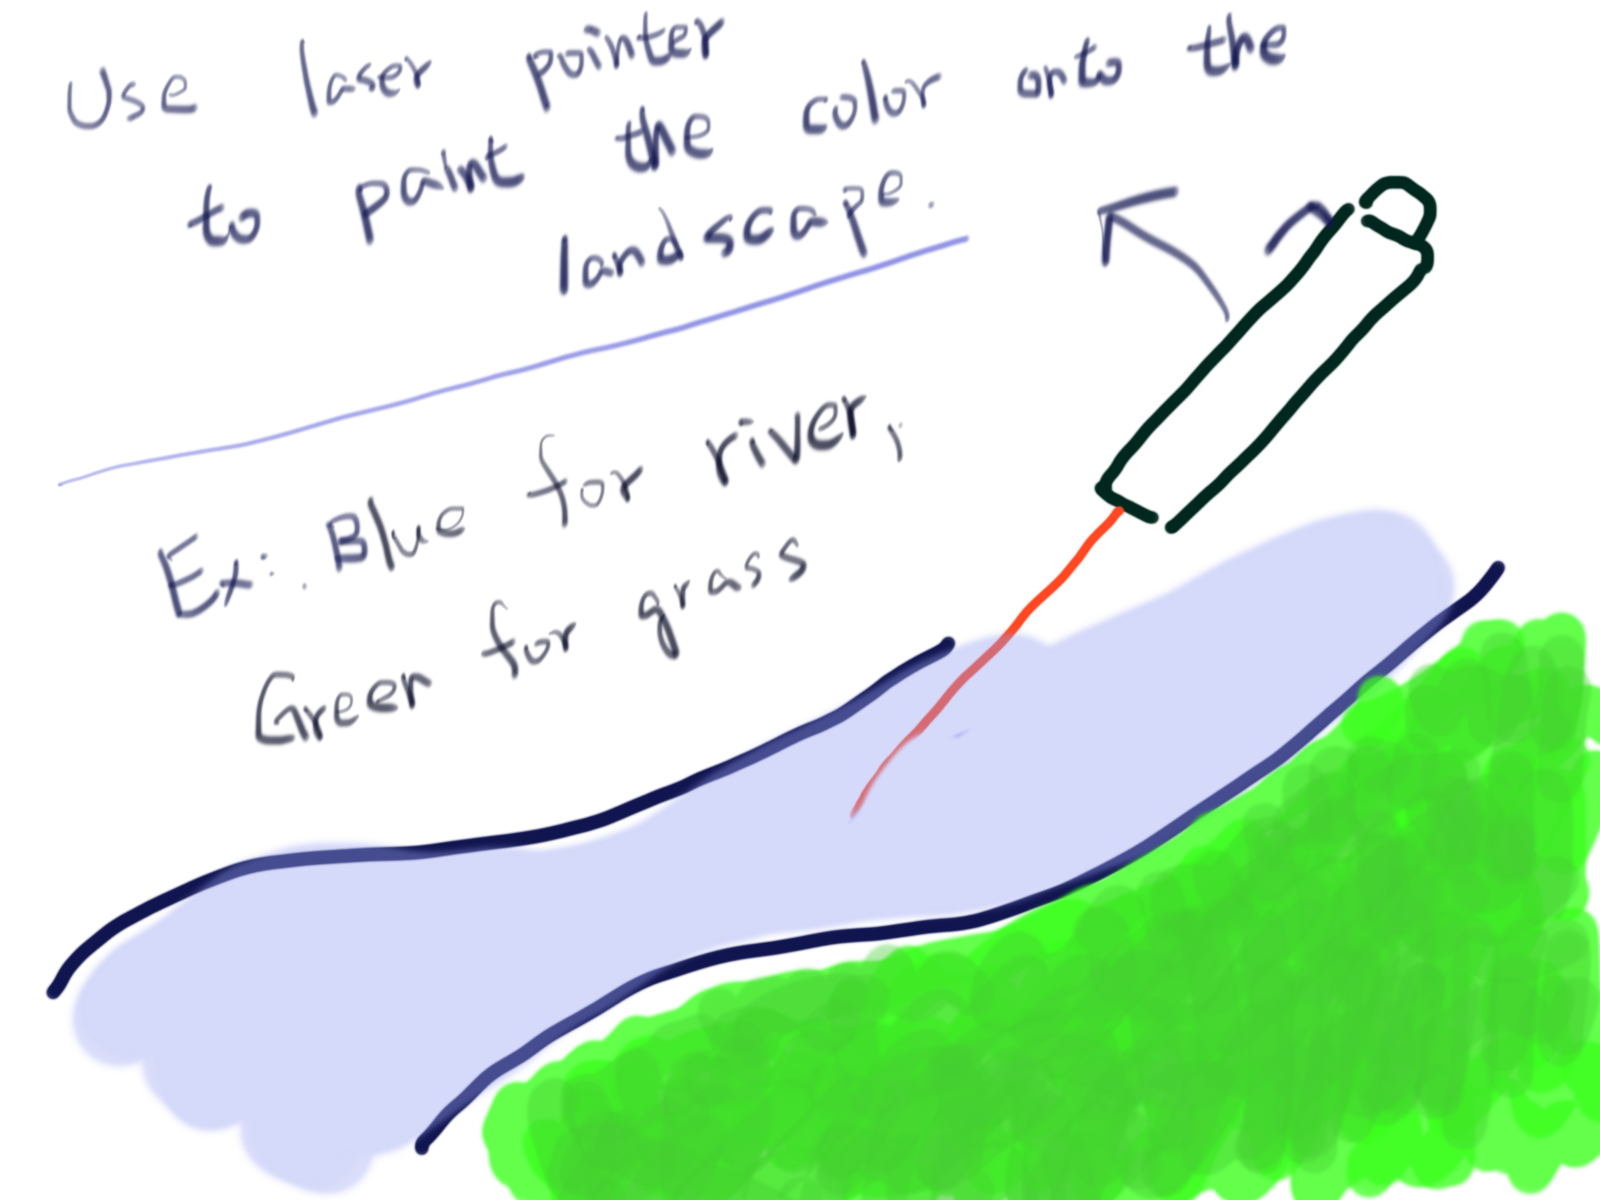 Use laser pointer
to paint the color onto the
landscape.
Ex: Blue for river,
Green for grass